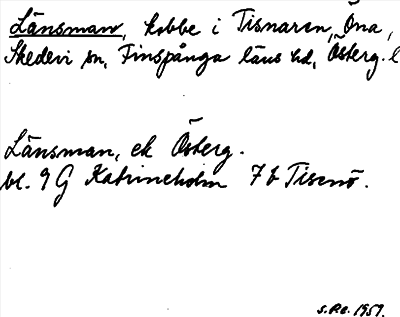 Länsman, kobbe i Tisnaren, Öna,
Skedevi sn, Finspånga läns hd, Österg. l
Länsman, ek Österg.
bl. 9 G Katrineholm 7 b Tisnö.
S.Ro. 1959.